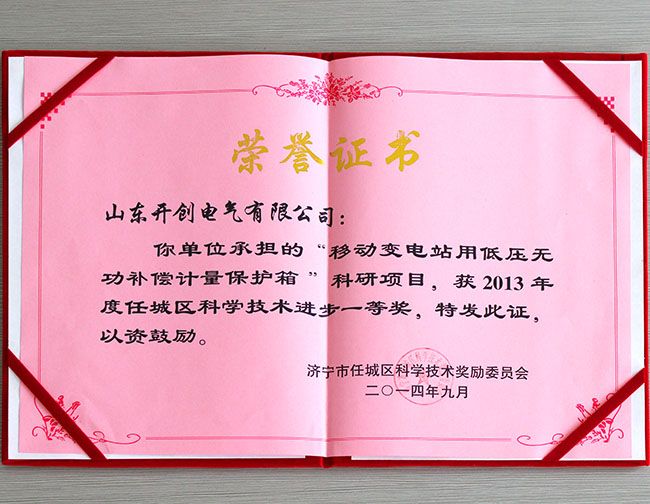 荣誉证书
山东开创电气有限公司：
你单位承担的“移动变电站用低压无
功补偿计量保护箱”科研项目，获2013年
度任城区科学技术进步一等奖，特发此证，
以资鼓励。
济宁市任城区科学技术奖励委员会
二〇一四年九月